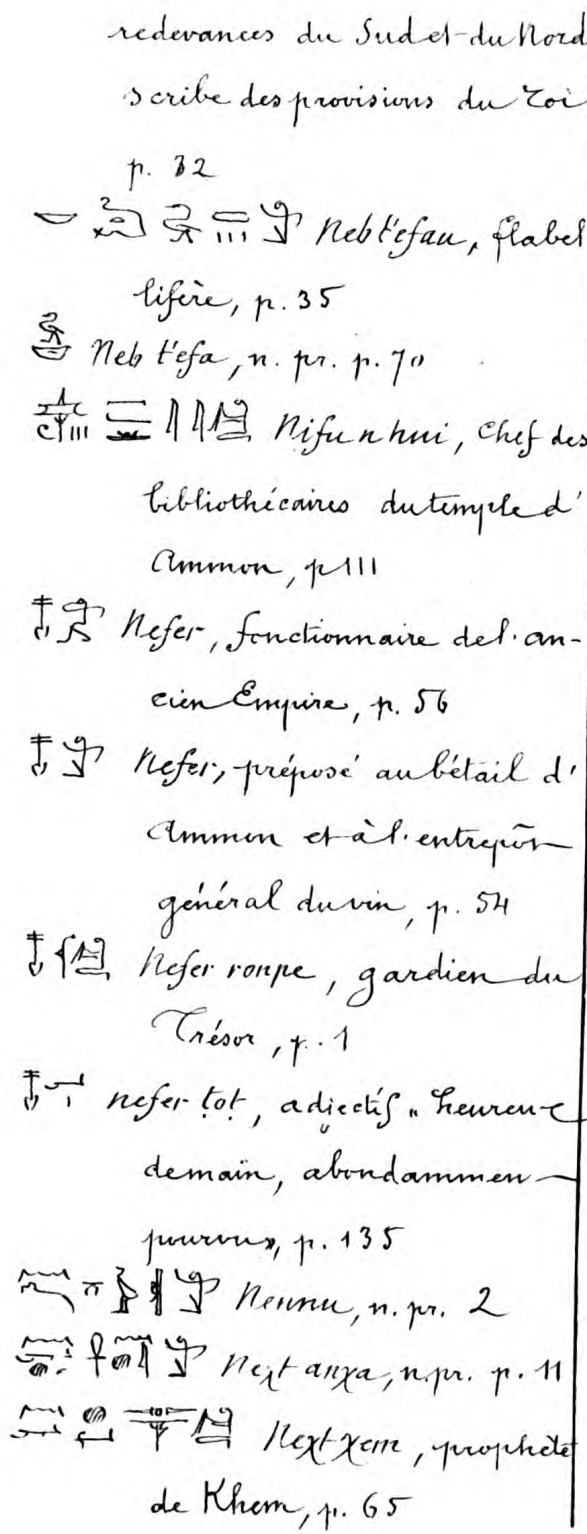 redevances du Sud et du Nord
scribe des provisions du roi
p. 32
Neb t'efau, flabel
lifère, p. 35
Neb t'efa, n. pr. p. 70
Nifu n hui, Chef des
bibliothécaires du temple d'
Ammon, p 111
Nefer, fonctionnaire de l'an-
cien Empire, p. 56
Nefer, préposé au bétail d'
Ammon et à l'entrepôt
général du vin, p. 54
Nefer ronpe, gardien du
Trésor, p. 1
nefer ṭoṭ, adjectif „ heureux
de main, abondamment
pourvu», p. 135
Nennu, n. pr. 2
Neχt anχa, n. pr. p. 11
Neχt χem, prophète
de Khem, p. 65